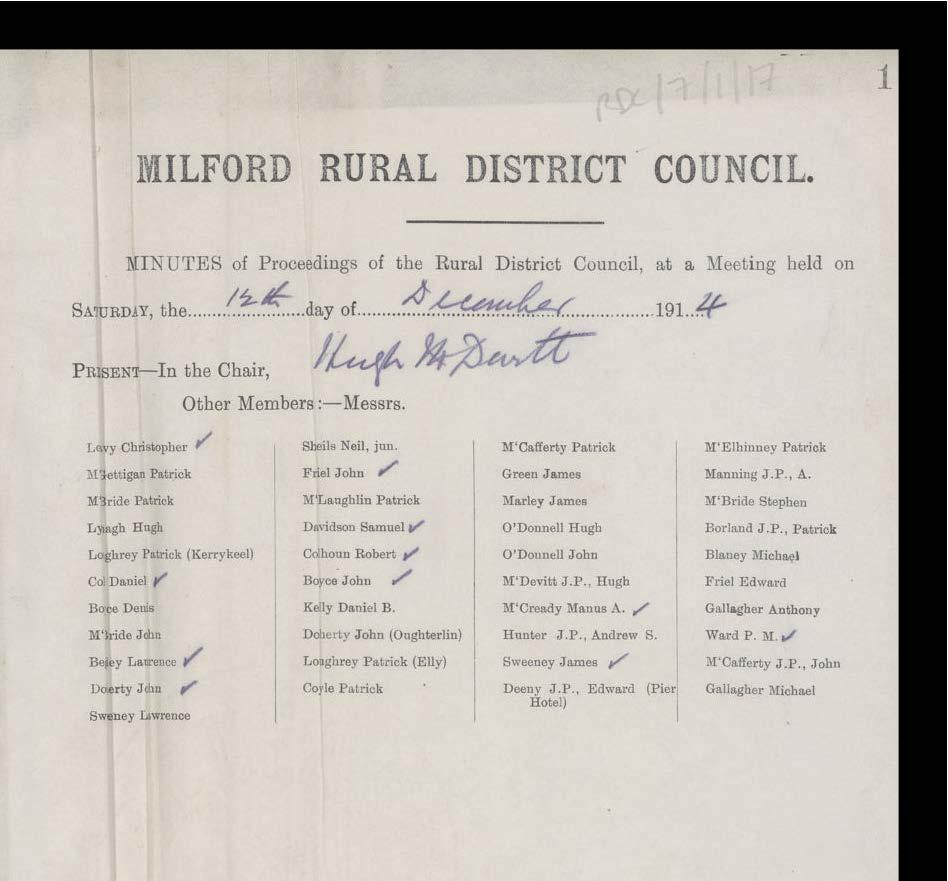 RDC/7/1/17
1
MILFORD RURAL DISTRICT COUNCIL.
MINUTES of Proceedings of the Rural District Council, at a Meeting held on
SATURDAY, the 12th day of December 1914
PRESENT—In the Chair, Hugh McDevitt
Other Members:—Messrs.
Levy Christopher ✓
M‘Fettigan Patrick
M‘Bride Patrick
Lynagh Hugh
Loghrey Patrick (Kerrykeel)
Coll Daniel ✓
Boyce Denis
M‘Bride John
Laurence ✓
Doherty John ✓
Sweeney Lawrence
Sheils Neil, jun.
Friel John ✓
M‘Laughlin Patrick
Davidson Samuel ✓
Colhoun Robert ✓
Boyce John ✓
Kelly Daniel B.
Doherty John (Oughterlin)
Loughrey Patrick (Elly)
Coyle Patrick
M‘Cafferty Patrick
Green James
Marley James
O’Donnell Hugh
O’Donnell John
M‘Devitt J.P., Hugh
M‘Cready Manus A. ✓
Hunter J.P., Andrew S.
Sweeney James ✓
Deeny J.P., Edward (Pier
Hotel)
M‘Elhinney Patrick
Manning J.P., A.
M‘Bride Stephen
Borland J.P., Patrick
Blaney Michael
Friel Edward
Gallagher Anthony
Ward P. M. ✓
M‘Cafferty J.P., John
Gallagher Michael